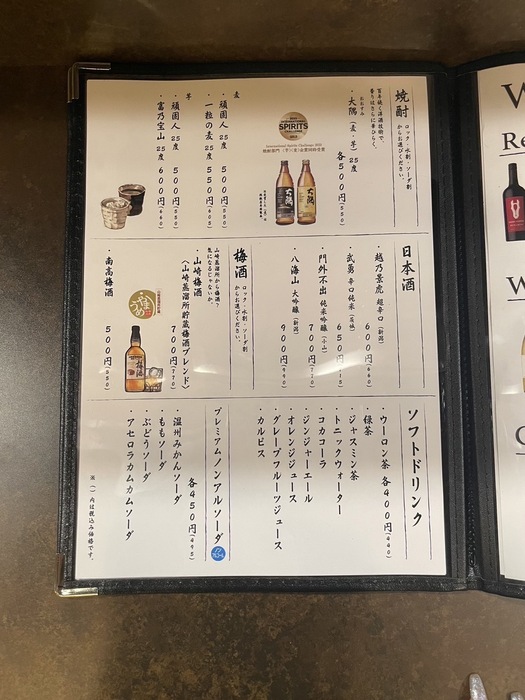 焼酎
ロック・水割・ソーダ割
からお選びください。
百年続く洋酒技術で
香りはさらに華ひらく。
おおすみ
・大隅（麦・芋）25度
各500円（550）
SPIRITS
International Spirits Challenge
麦
・頑固人 25度 500円（550）
・一粒の麦 25度 550円（605）
芋
・頑固人 25度 500円（550）
・富乃宝山 25度 600円（660）
日本酒
・越乃景虎 超辛口（新潟） 600円（660）
・武勇 辛口純米（茨城） 650円（715）
・門外不出 純米吟醸（小山） 700円（770）
・八海山 大吟醸（新潟） 900円（990）
梅酒
ロック・水割・ソーダ割
からお選びください。
山崎蒸溜所から梅酒？
気になるじゃないか。
・山崎梅酒
（山崎蒸溜所貯蔵梅酒ブレンド）
700円（770）
やまうめ
・南高梅酒 500円（550）
ソフトドリンク
・ウーロン茶 各400円（440）
・緑茶
・ジャスミン茶
・トニックウォーター
・コカコーラ
・ジンジャーエール
・オレンジジュース
・グレープフルーツジュース
・カルピス
プレミアムノンアルソーダ
ノンアルコール
・温州みかんソーダ 各450円（495）
・ももソーダ
・ぶどうソーダ
・アセロラカムカムソーダ
※（）内は税込み価格です。
W
Re
W